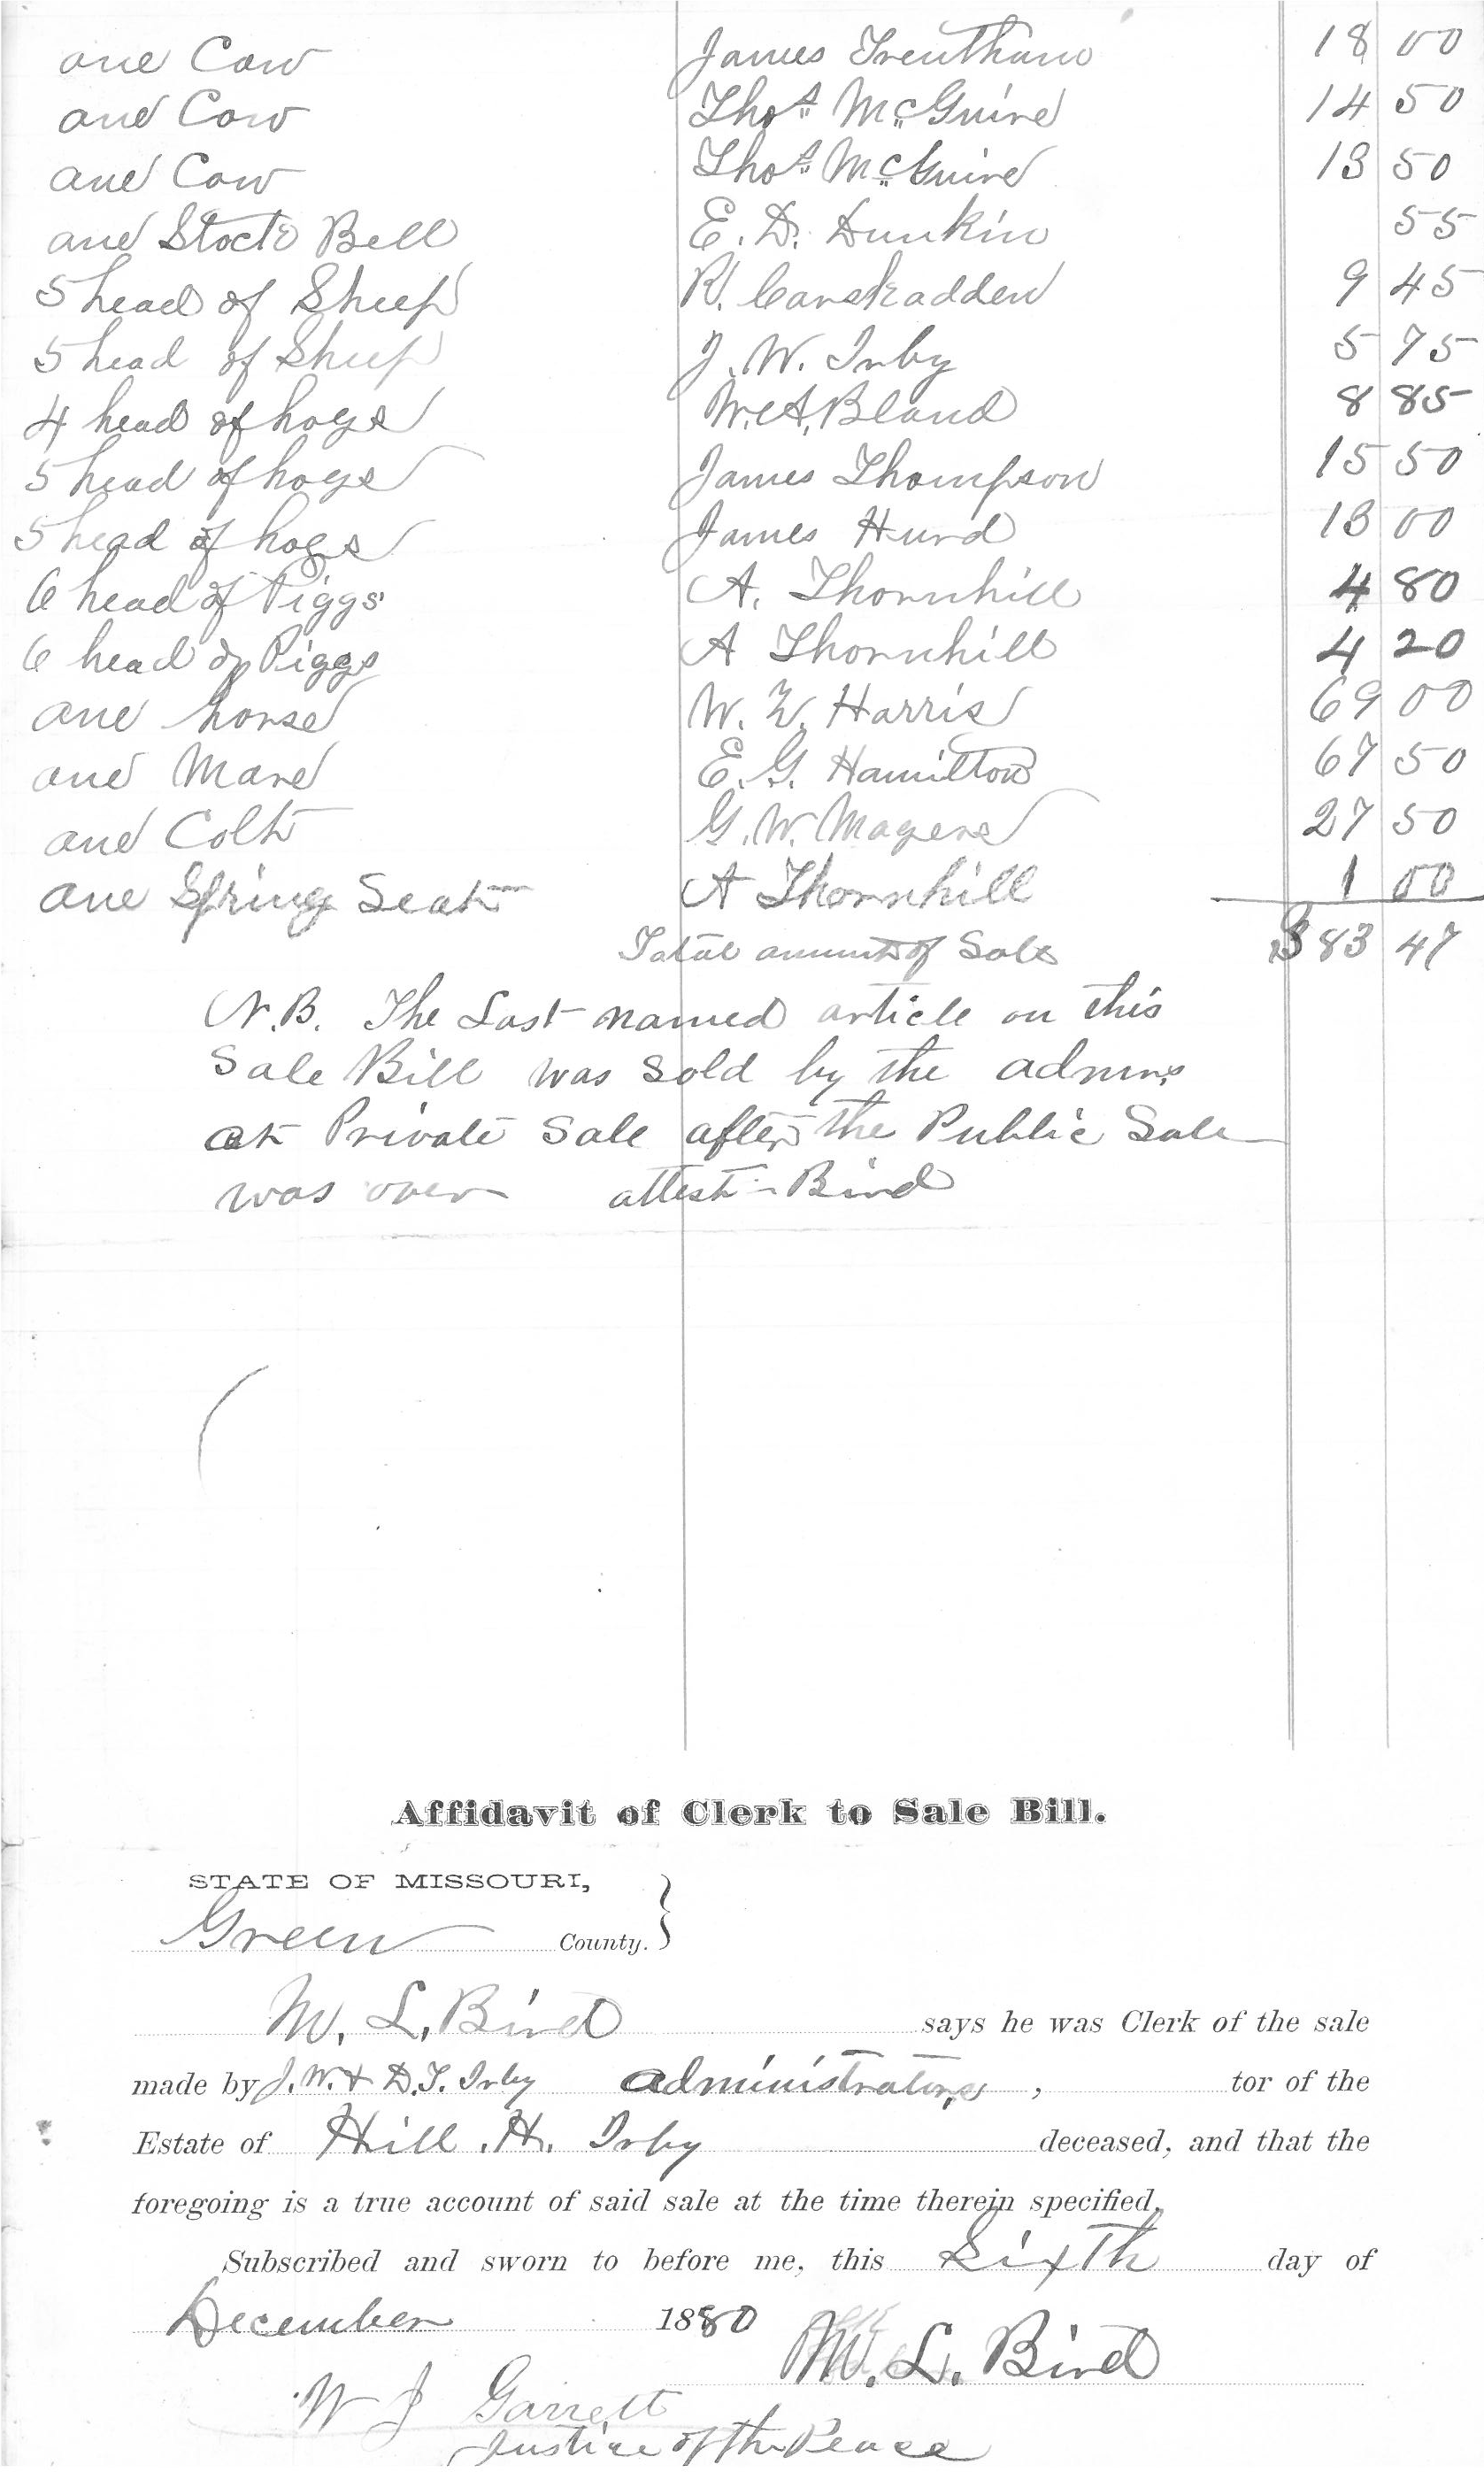 one Cow James Trentham 18 00
one Cow Thos McGuire 14 50
one Cow Thos McGuire 13 50
one Stock Bell E. D. Dunkin 55
5 head of Sheep R. Carskadden 9 45
5 head of Sheep J. W. Irby 5 75
4 head of hogs W. A. Bland 8 85
5 head of hogs James Thompson 15 50
5 head of hogs James Hurd 13 00
6 head of Piggs A. Thornhill 4 80
6 head of Piggs A Thornhill 4 20
one horse W. Harris 69 00
one Mare E. G. Hamilton 67 50
one Colt G. W. Magers 27 50
one Spring Seat A Thornhill 1 00
Total amount of Sale 383 47
N.B. The Last named article on this
Sale Bill was sold by the admrs
at Private Sale after the Public Sale
was over attest - Bird
Affidavit of Clerk to Sale Bill.
STATE OF MISSOURI,
Green County.
M. L. Bird says he was Clerk of the sale
made by J. W. & D. T. Irby administrators, tor of the
Estate of Hill. H. Irby deceased, and that the
foregoing is a true account of said sale at the time therein specified.
Subscribed and sworn to before me, this Sixth day of
December 1880
M. L. Bird
W J Garrett
Justice of the Peace